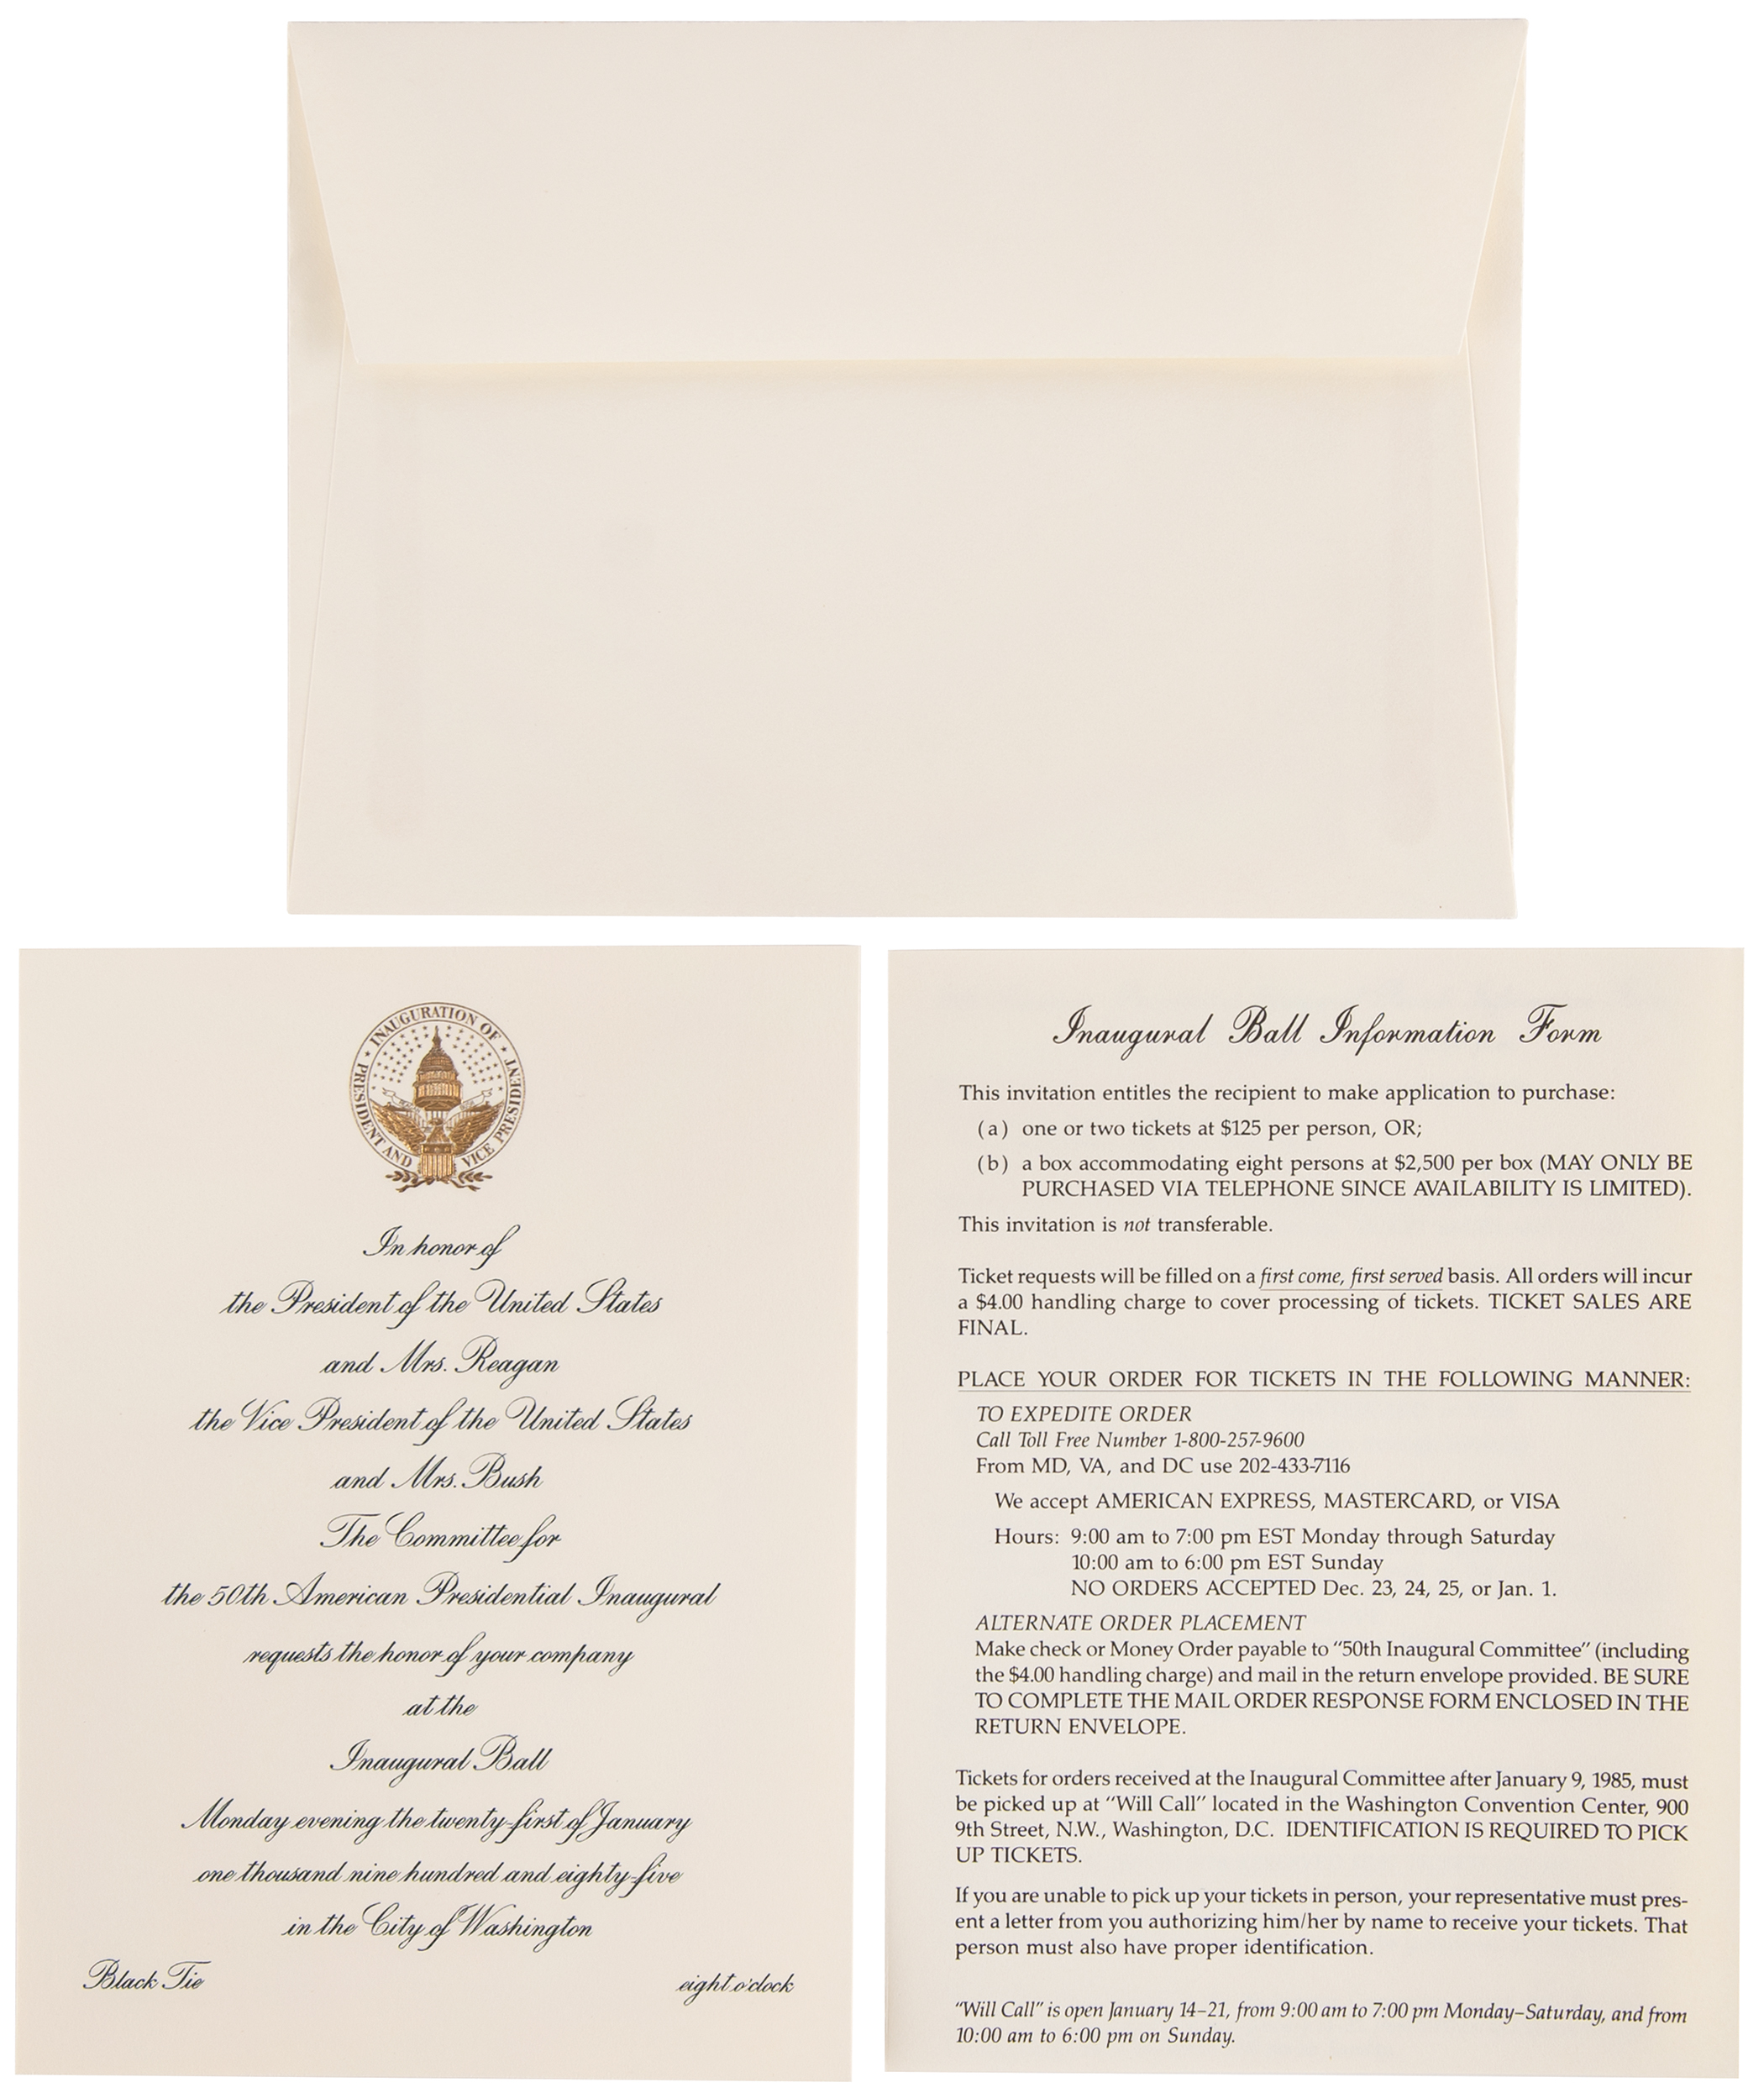 INAUGURATION OF
PRESIDENT AND VICE PRESIDENT
In honor of
the President of the United States
and Mrs. Reagan
the Vice President of the United States
and Mrs. Bush
The Committee for
the 50th American Presidential Inaugural
requests the honor of your company
at the
Inaugural Ball
Monday evening the twenty-first of January
one thousand nine hundred and eighty-five
in the City of Washington
Black Tie
eight o'clock
Inaugural Ball Information Form
This invitation entitles the recipient to make application to purchase:
(a) one or two tickets at $125 per person, OR;
(b) a box accommodating eight persons at $2,500 per box (MAY ONLY BE
PURCHASED VIA TELEPHONE SINCE AVAILABILITY IS LIMITED).
This invitation is not transferable.
Ticket requests will be filled on a first come, first served basis. All orders will incur
a $4.00 handling charge to cover processing of tickets. TICKET SALES ARE
FINAL.
PLACE YOUR ORDER FOR TICKETS IN THE FOLLOWING MANNER:
TO EXPEDITE ORDER
Call Toll Free Number 1-800-257-9600
From MD, VA, and DC use 202-433-7116
We accept AMERICAN EXPRESS, MASTERCARD, or VISA
Hours: 9:00 am to 7:00 pm EST Monday through Saturday
10:00 am to 6:00 pm EST Sunday
NO ORDERS ACCEPTED Dec. 23, 24, 25, or Jan. 1.
ALTERNATE ORDER PLACEMENT
Make check or Money Order payable to “50th Inaugural Committee” (including
the $4.00 handling charge) and mail in the return envelope provided. BE SURE
TO COMPLETE THE MAIL ORDER RESPONSE FORM ENCLOSED IN THE
RETURN ENVELOPE.
Tickets for orders received at the Inaugural Committee after January 9, 1985, must
be picked up at “Will Call” located in the Washington Convention Center, 900
9th Street, N.W., Washington, D.C. IDENTIFICATION IS REQUIRED TO PICK
UP TICKETS.
If you are unable to pick up your tickets in person, your representative must pres-
ent a letter from you authorizing him/her by name to receive your tickets. That
person must also have proper identification.
“Will Call” is open January 14–21, from 9:00 am to 7:00 pm Monday–Saturday, and from
10:00 am to 6:00 pm on Sunday.